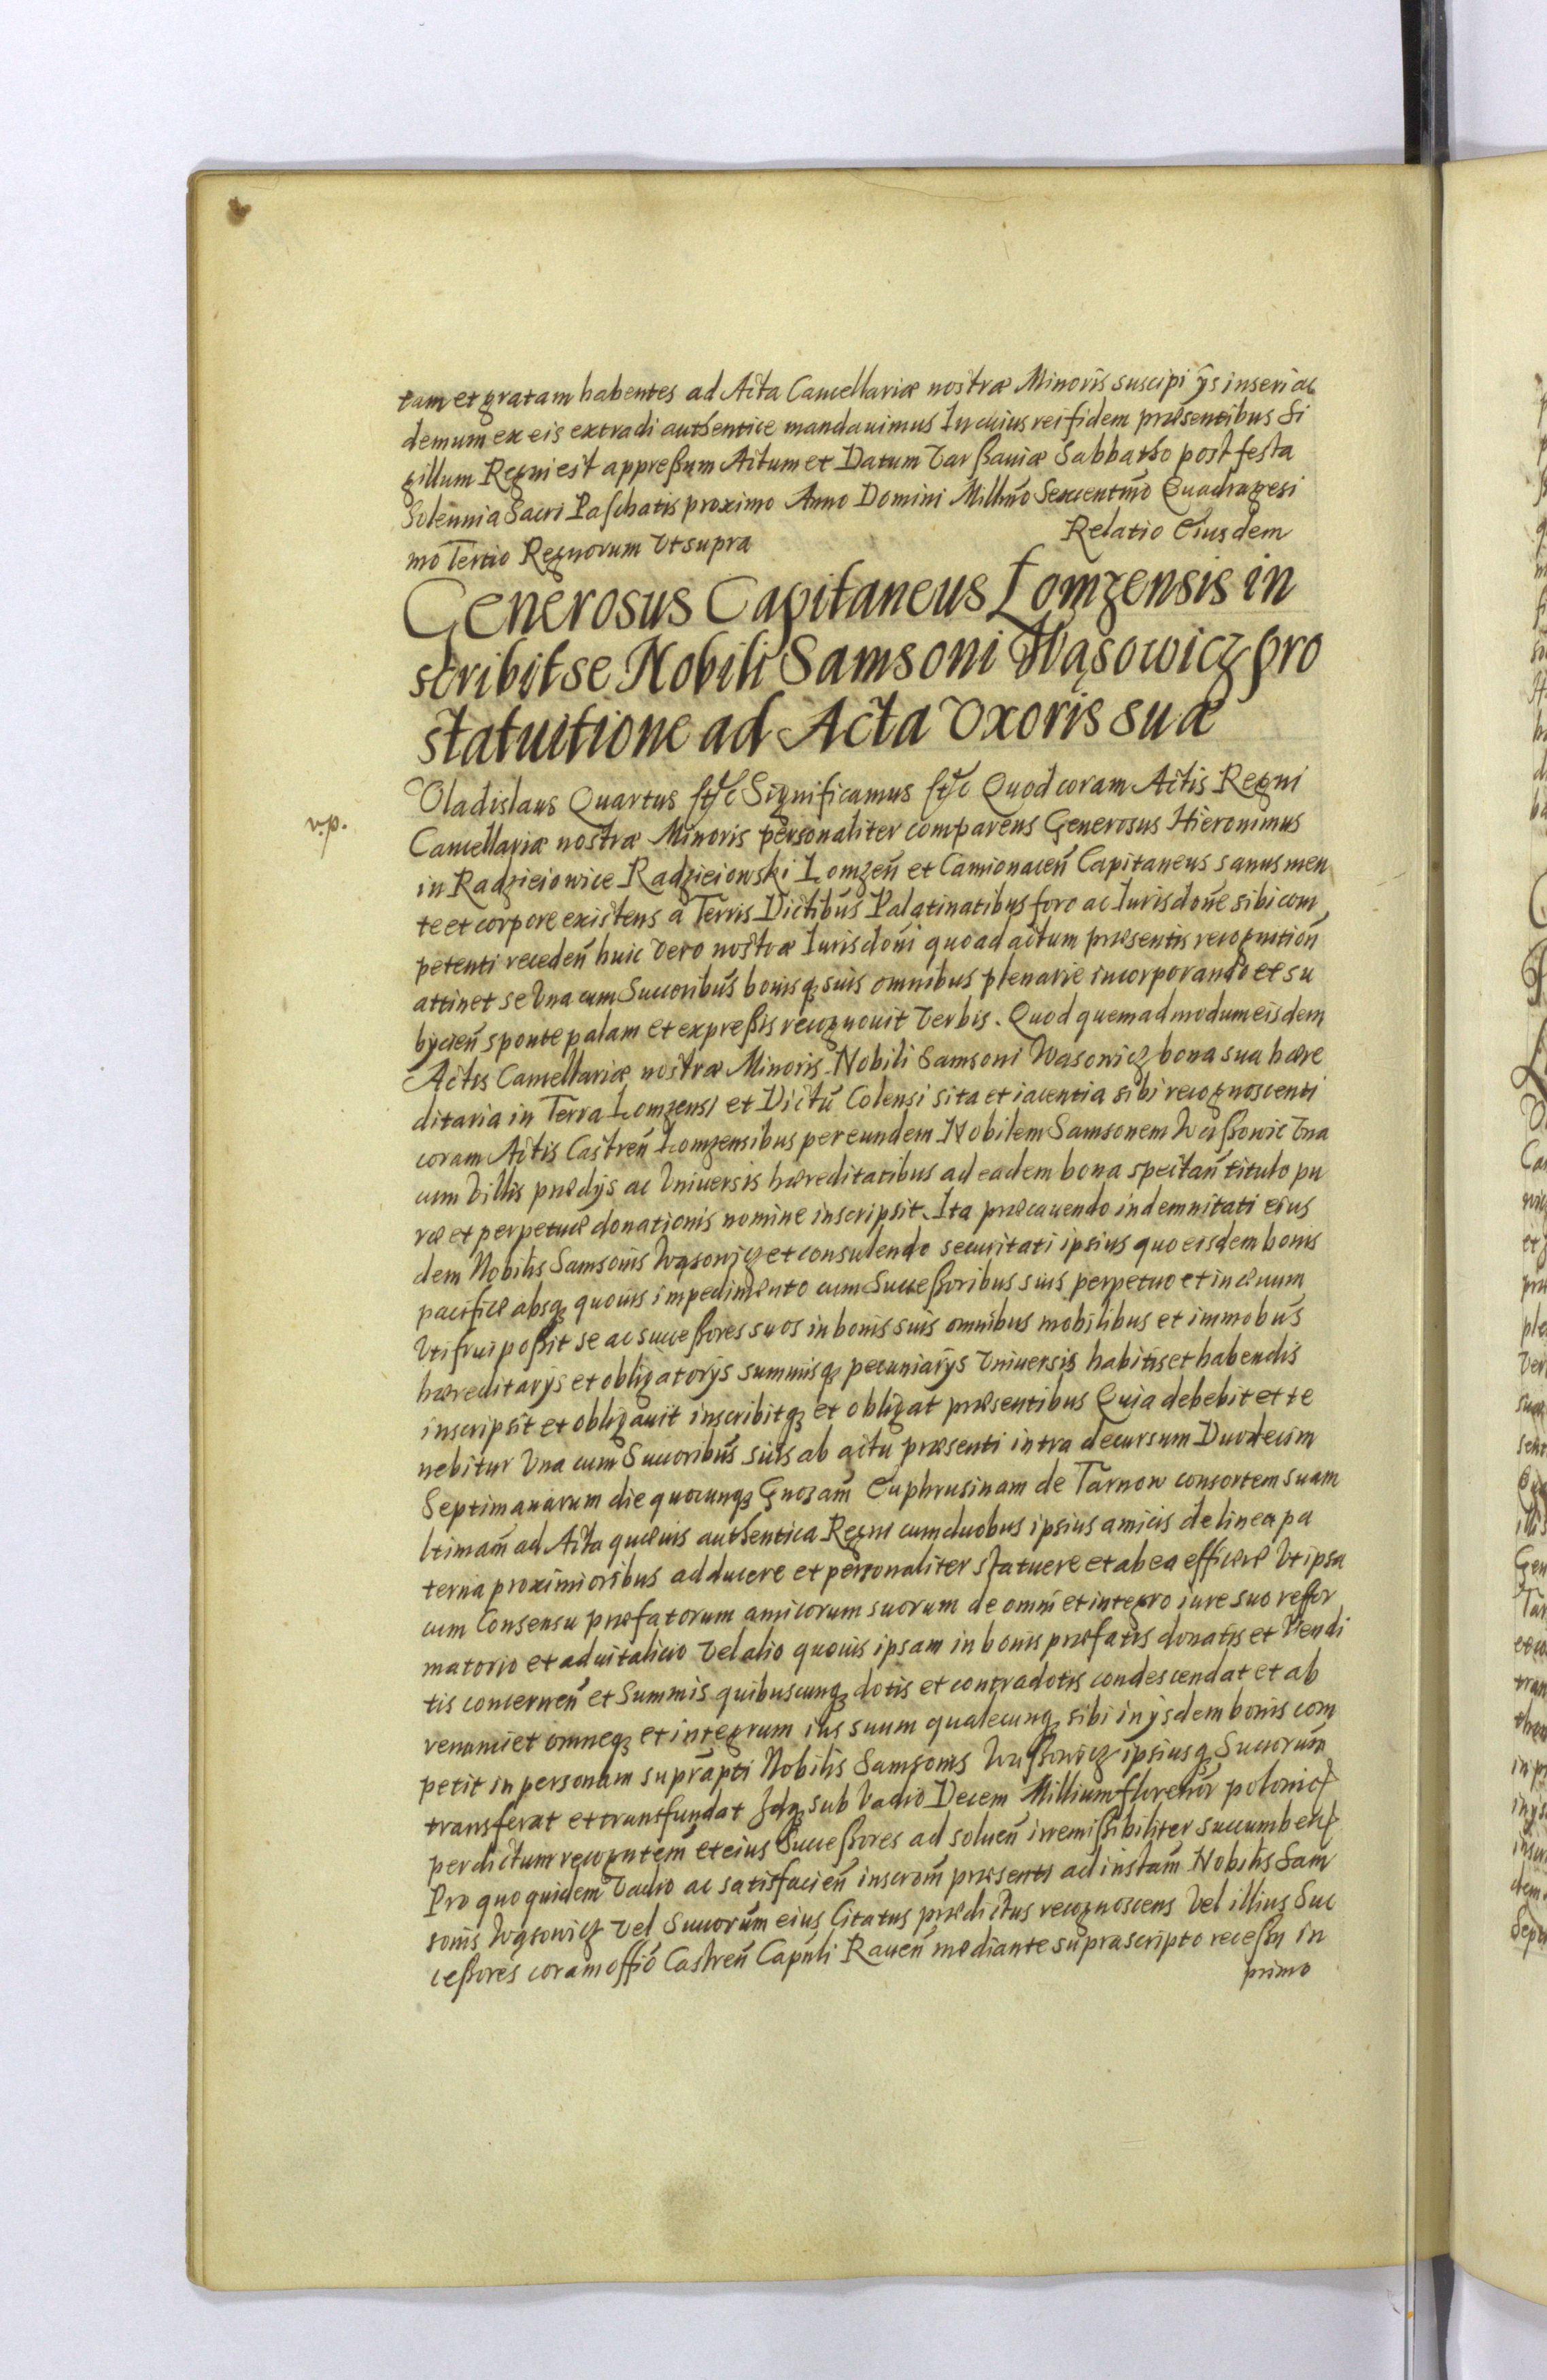 tam et gratam habentes ad Acta Cancellariæ nostræ Minoris suscipi ijs inseri ac
demum ex eis extradi authentice mandauimus In cuius rei fidem præsentibus Si
gillum Regni est appreßum Actum et Datum Varßauiæ Sabbatho post festa
Solennia Sacri Paschatis proximo Anno Domini Millmo Sexcentmo Quadragesi
mo Tertio Regnorum Vt supra
Relatio Eiusdem
Generosus Capitaneus Lomzensis in
scribit se Nobili Samsoni Wąsowicz pro
statuitione ad Acta Vxoris suæ
v.p.
Vladislaus Quartus etc Significamus etc Quod coram Actis Regni
Cancellariæ nostræ Minoris personaliter comparens Generosus Hieronimus
in Radzieiowice Radzieiowski Lomzeñ et Camionaceñ Capitaneus sanus men
te et corpore existens a Terris Dictibus Palatinatibus foro ac Iurisdone sibi com
petenti recedeñ huic vero nostræ Iurisdoni quo ad actum præsentis recognitioñ
attinet se Vna cum Succoribus bonisq; suis omnibus plenarie incorporando et su
bijcieñ sponte palam et expreßis recognouit Verbis. Quod quemadmodum eisdem
Actis Cancellariæ nostræ Minoris Nobili Samsoni Wasowicz bona sua hære
ditaria in Terra Lomzensi et Dictu Colensi sita et iacentia sibi recognoscenti
coram Actis Castreñ Lomzensibus per eundem Nobilem Samsonem Waßowic Vna
cum Villis prædijs ac Vniuersis hæreditatibus ad eadem bona spectañ titulo pu
ræ et perpetuæ donationis nomine inscripsit. Ita præcauendo indemnitati eius
dem Nobilis Samsonis Wąsowicz et consulendo securitati ipsius quo eisdem bonis
pacifice absq; quouis impedimento cum Succeßoribus suis perpetuo et in æuum
Vti frui poßit se ac succeßores suos in bonis suis omnibus mobilibus et immobus
hæreditarijs et obligatorijs summisq; pecuniarijs Vniuersis habitis et habendis
inscripsit et obligauit inscribitq; et obligat præsentibus Quia debebit et te
nebitur Vna cum Succoribus suis ab actu præsenti intra decursum Duodecim
Septimanarum die quocunq; Gnosam Euphrusinam de Tarnow consortem suam
ltimam ad Acta quæuis authentica Regni cum duobus ipsius amicis de linea pa
terna proximioribus adducere et personaliter statuere et ab ea efficere Vt ipsa
cum Consensu præfatorum amicorum suorum de omni et integro iure suo reffor
matorio et aduitalicio Vel alio quouis ipsam in bonis præfatis donatis et Vendi
tis concerneñ et Summis quibuscunq; dotis et contradotis condescendat et ab
renunciet omneq; et integrum ius suum qualecunq; sibi in ijsdem bonis com
petit in personam suprapti Nobilis Samsonis Waßowicz ipsiusq; Succorum
transferat et transfundat Idq; sub Vadio Decem Millium florenor polonic
per dictum recogntem et eius Succeßores ad solueñ irremißibiliter succumbeñ
Pro quo quidem Vadio ac satisfacieñ inscrom præsenti ad instam Nobilis Sam
sonis Wąsowicz Vel Succorum eius Citatus prædictus recognoscens Vel illius Suc
ceßores coram offio Castreñ Capnli Raueñ mediante suprascripto receßu in
primo